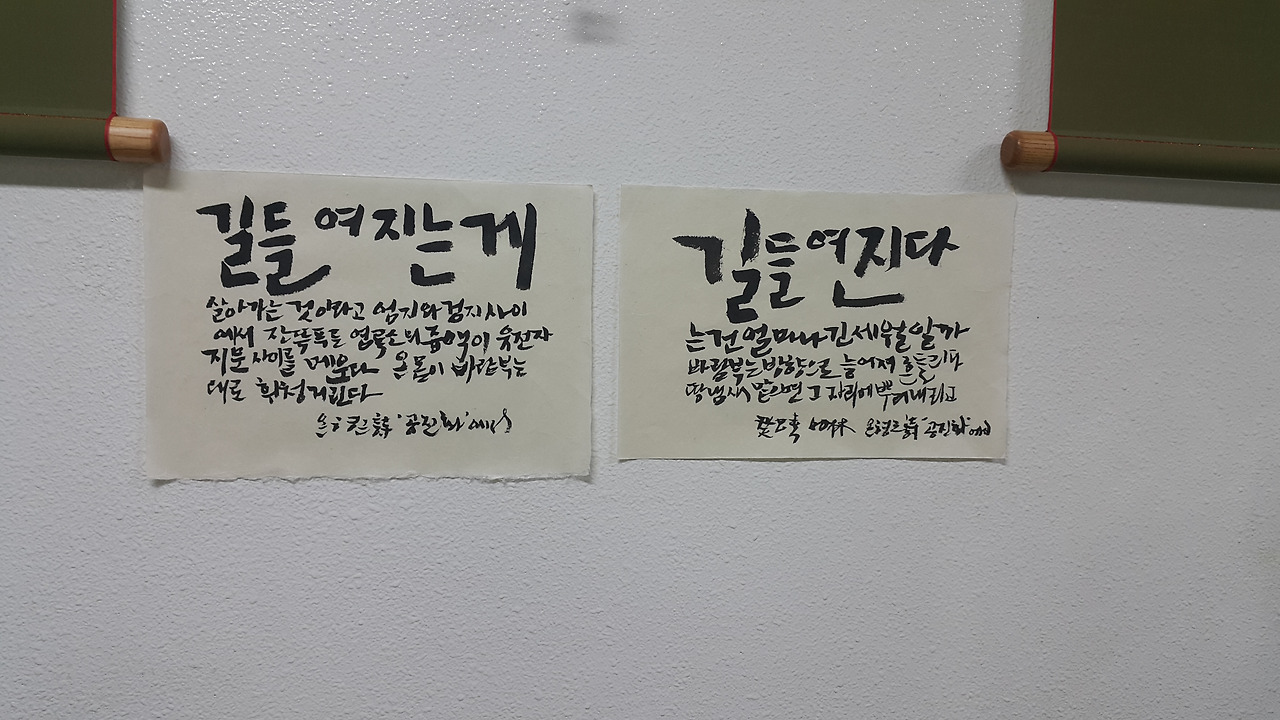 길들여지는게
살아가는 것이라고 엄지와 검지사이
에서 잔뜩푸른 엽록소의 흡액이 유전자
지문 사이를 메운다 온몸이 바람부는
대로 휘청거린다
'공진화'에서
길들여진다
는건 얼마나 긴 세월일까
바람부는 방향으로 늘어져 흔들리다
땅냄새 맡으면 그 자리에 뿌려내리고
'공진화'에서